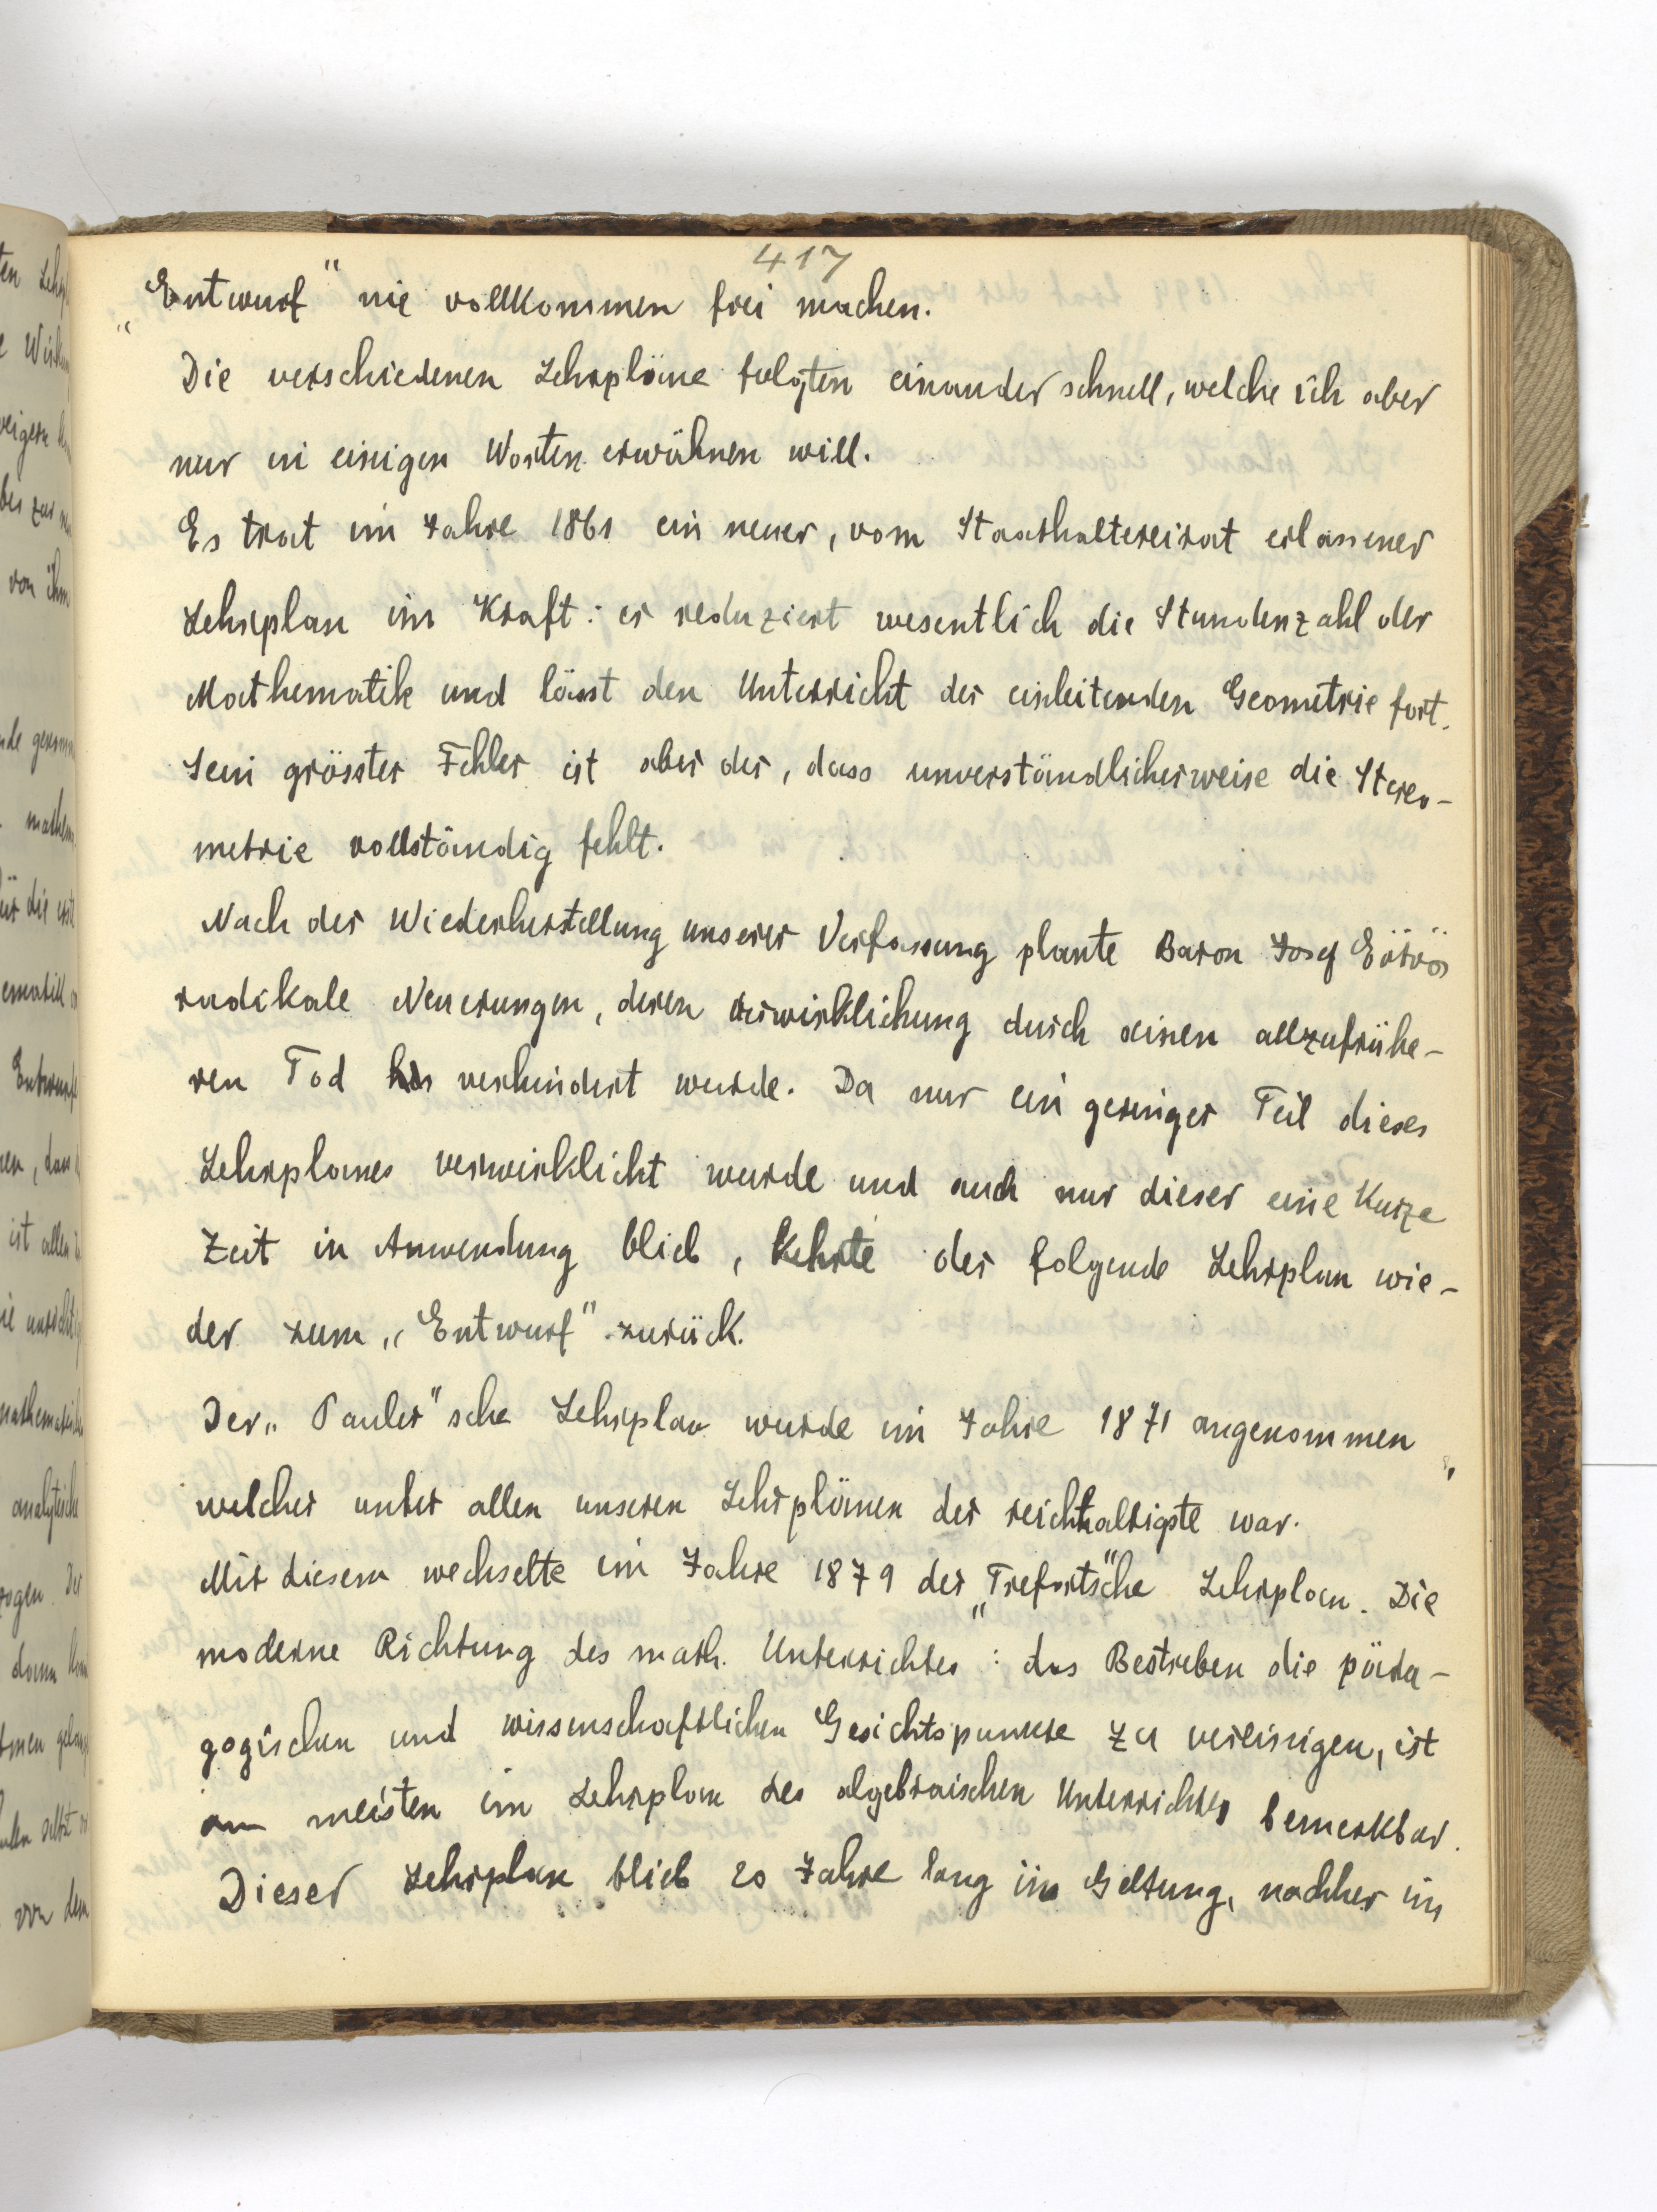 417
„Entwurf" nie vollkommen frei machen.
Die verschiedenen Lehrpläne folgten einander schnell, welche ich aber
nur in einigen Worten erwähnen will.
Es trat im Jahre 1861 ein neuer, vom Staathaltereirat erlassener
Lehrplan im Kraft: er reduziert wesentlich die Stundenzahl der
Mathematik und lässt den Unterricht der einleitenden Geometrie fort.
Sein grösster Fehler ist aber der, dass unverständlicherweise die Stereo-
metrie vollständig fehlt.
Nach der Wiederherstellung unserer Verfassung plante Baron Josef Eötvös
radikale Neuerungen, deren Verwirklichung durch seinen allzufrühe-
ren Tod verhindert wurde. Da nur ein geringer Teil dieses
Lehrplanes verwirklicht wurde und auch nur dieser eine kurze
Zeit in Anwendung blieb, kehrte der folgende Lehrplan wie-
der zum „Entwurf" zurück.
Der „Pauler"sche Lehrplan wurde im Jahre 1871 angenommen,
welcher unter allen unseren Lehrplänen der reichhaltigste war.
Mit diesem wechselte im Jahre 1879 der „Trefort"sche Lehrplan. Die
moderne Richtung des math. Unterrichtes: das Bestreben die päda-
gogischen und wissenschaftlichen Gesichtspunkte zu vereinigen, ist
am meisten im Lehrplan des algebraischen Unterrichtes bemerkbar.
Dieser Lehrplan blieb 20 Jahre lang in Geltung, nachher im